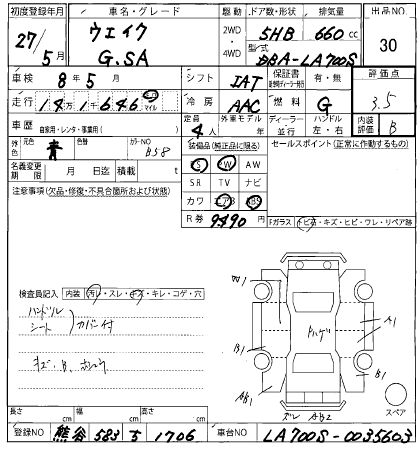 初度登録年月 車名・グレード 駆動 ドア数・形状 排気量 出品NO
27/5月 ウェイク G.SA 2WD 4WD 5HB 660cc 30
型式 DBA-LA700S
車検 8年5月 シフト IAT 保証書 有・無 評価点 3.5
走行 14万1千646 km マイル 冷房 AAC 燃料 G
車歴 自家用・レンタ・事業用( ) 定員 4人 外車モデル 年 ディーラー 並行 ハンドル 左・右 内装評価 B
外色 元色 青 色替 カラーNO B58 装備品(純正品に限る) セールスポイント(正常に作動するもの)
名義変更期限 月 日迄 積載 t PS PW AW
注意事項(欠品・修復・不具合箇所および状態) SR TV ナビ
カワ エアB ABS
R券 9490円 Fガラス トビ石・キズ・ヒビ・ワレ・リペア跡
検査員記入 内装 汚レ・スレ・キズ・キレ・コゲ・穴
ハンドル
シート カバー付
キズ・B、
W1 A1 B1 ハゲ B1 A1 ズレ AB2
スペア
長さ cm 幅 cm 高さ cm
登録NO 熊谷 583 ち 1706 車台NO LA700S-0035603